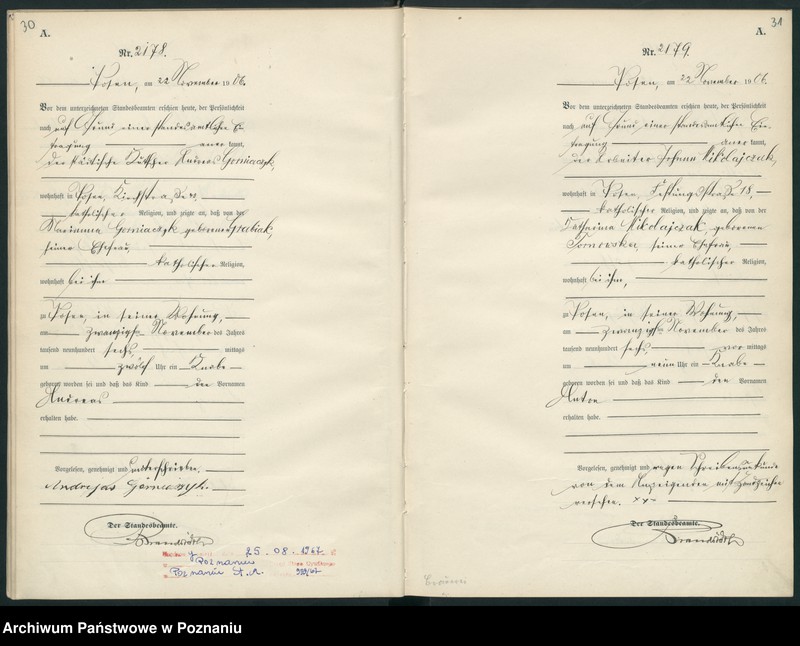 30
A.
Nr. 2178.
Posen, am 22 November 1906.
Vor dem unterzeichneten Standesbeamten erschien heute, der Persönlichkeit
nach auf Grund einer standesamtlichen Ein-
tragung aner kannt,
der städtische Kutscher Andreas Gorniaczyk,
wohnhaft in Posen,
katholischer Religion, und zeigte an, daß von der
Marianna Gorniaczyk geborenen Grabiak,
seiner Ehefrau,
katholischer Religion,
wohnhaft bei ihm
zu Posen, in seiner Wohnung,
am zwanzigsten November des Jahres
tausend neunhundert sechs mittags
um zwölf Uhr ein Knabe
geboren worden sei und daß das Kind den Vornamen
Andreas
erhalten habe.
Vorgelesen, genehmigt und unterschrieben.
Andrejas
Der Standesbeamte.
25.08.1967
Poznaniu
Poznaniu
31
A.
Nr. 2179.
Posen, am 22 November 1906.
Vor dem unterzeichneten Standesbeamten erschien heute, der Persönlichkeit
nach auf Grund einer standesamtlichen Ein-
tragung aner kannt,
der Arbeiter Johann Nikolajczak,
wohnhaft in Posen, Festungsstraße 18,
katholischer Religion, und zeigte an, daß von der
Katharina Nikolajczak, geborenen
seiner Ehefrau,
katholischer Religion,
wohnhaft bei ihm,
zu Posen, in seiner Wohnung,
am zwanzigsten November des Jahres
tausend neunhundert sechs vor mittags
um neun Uhr ein Knabe
geboren worden sei und daß das Kind den Vornamen
Anton
erhalten habe.
Vorgelesen, genehmigt und wegen Schreibensunkunde
von dem Anzeigenden mit Handzeichen
versehen. xxx
Der Standesbeamte.
Archiwum Państwowe w Poznaniu